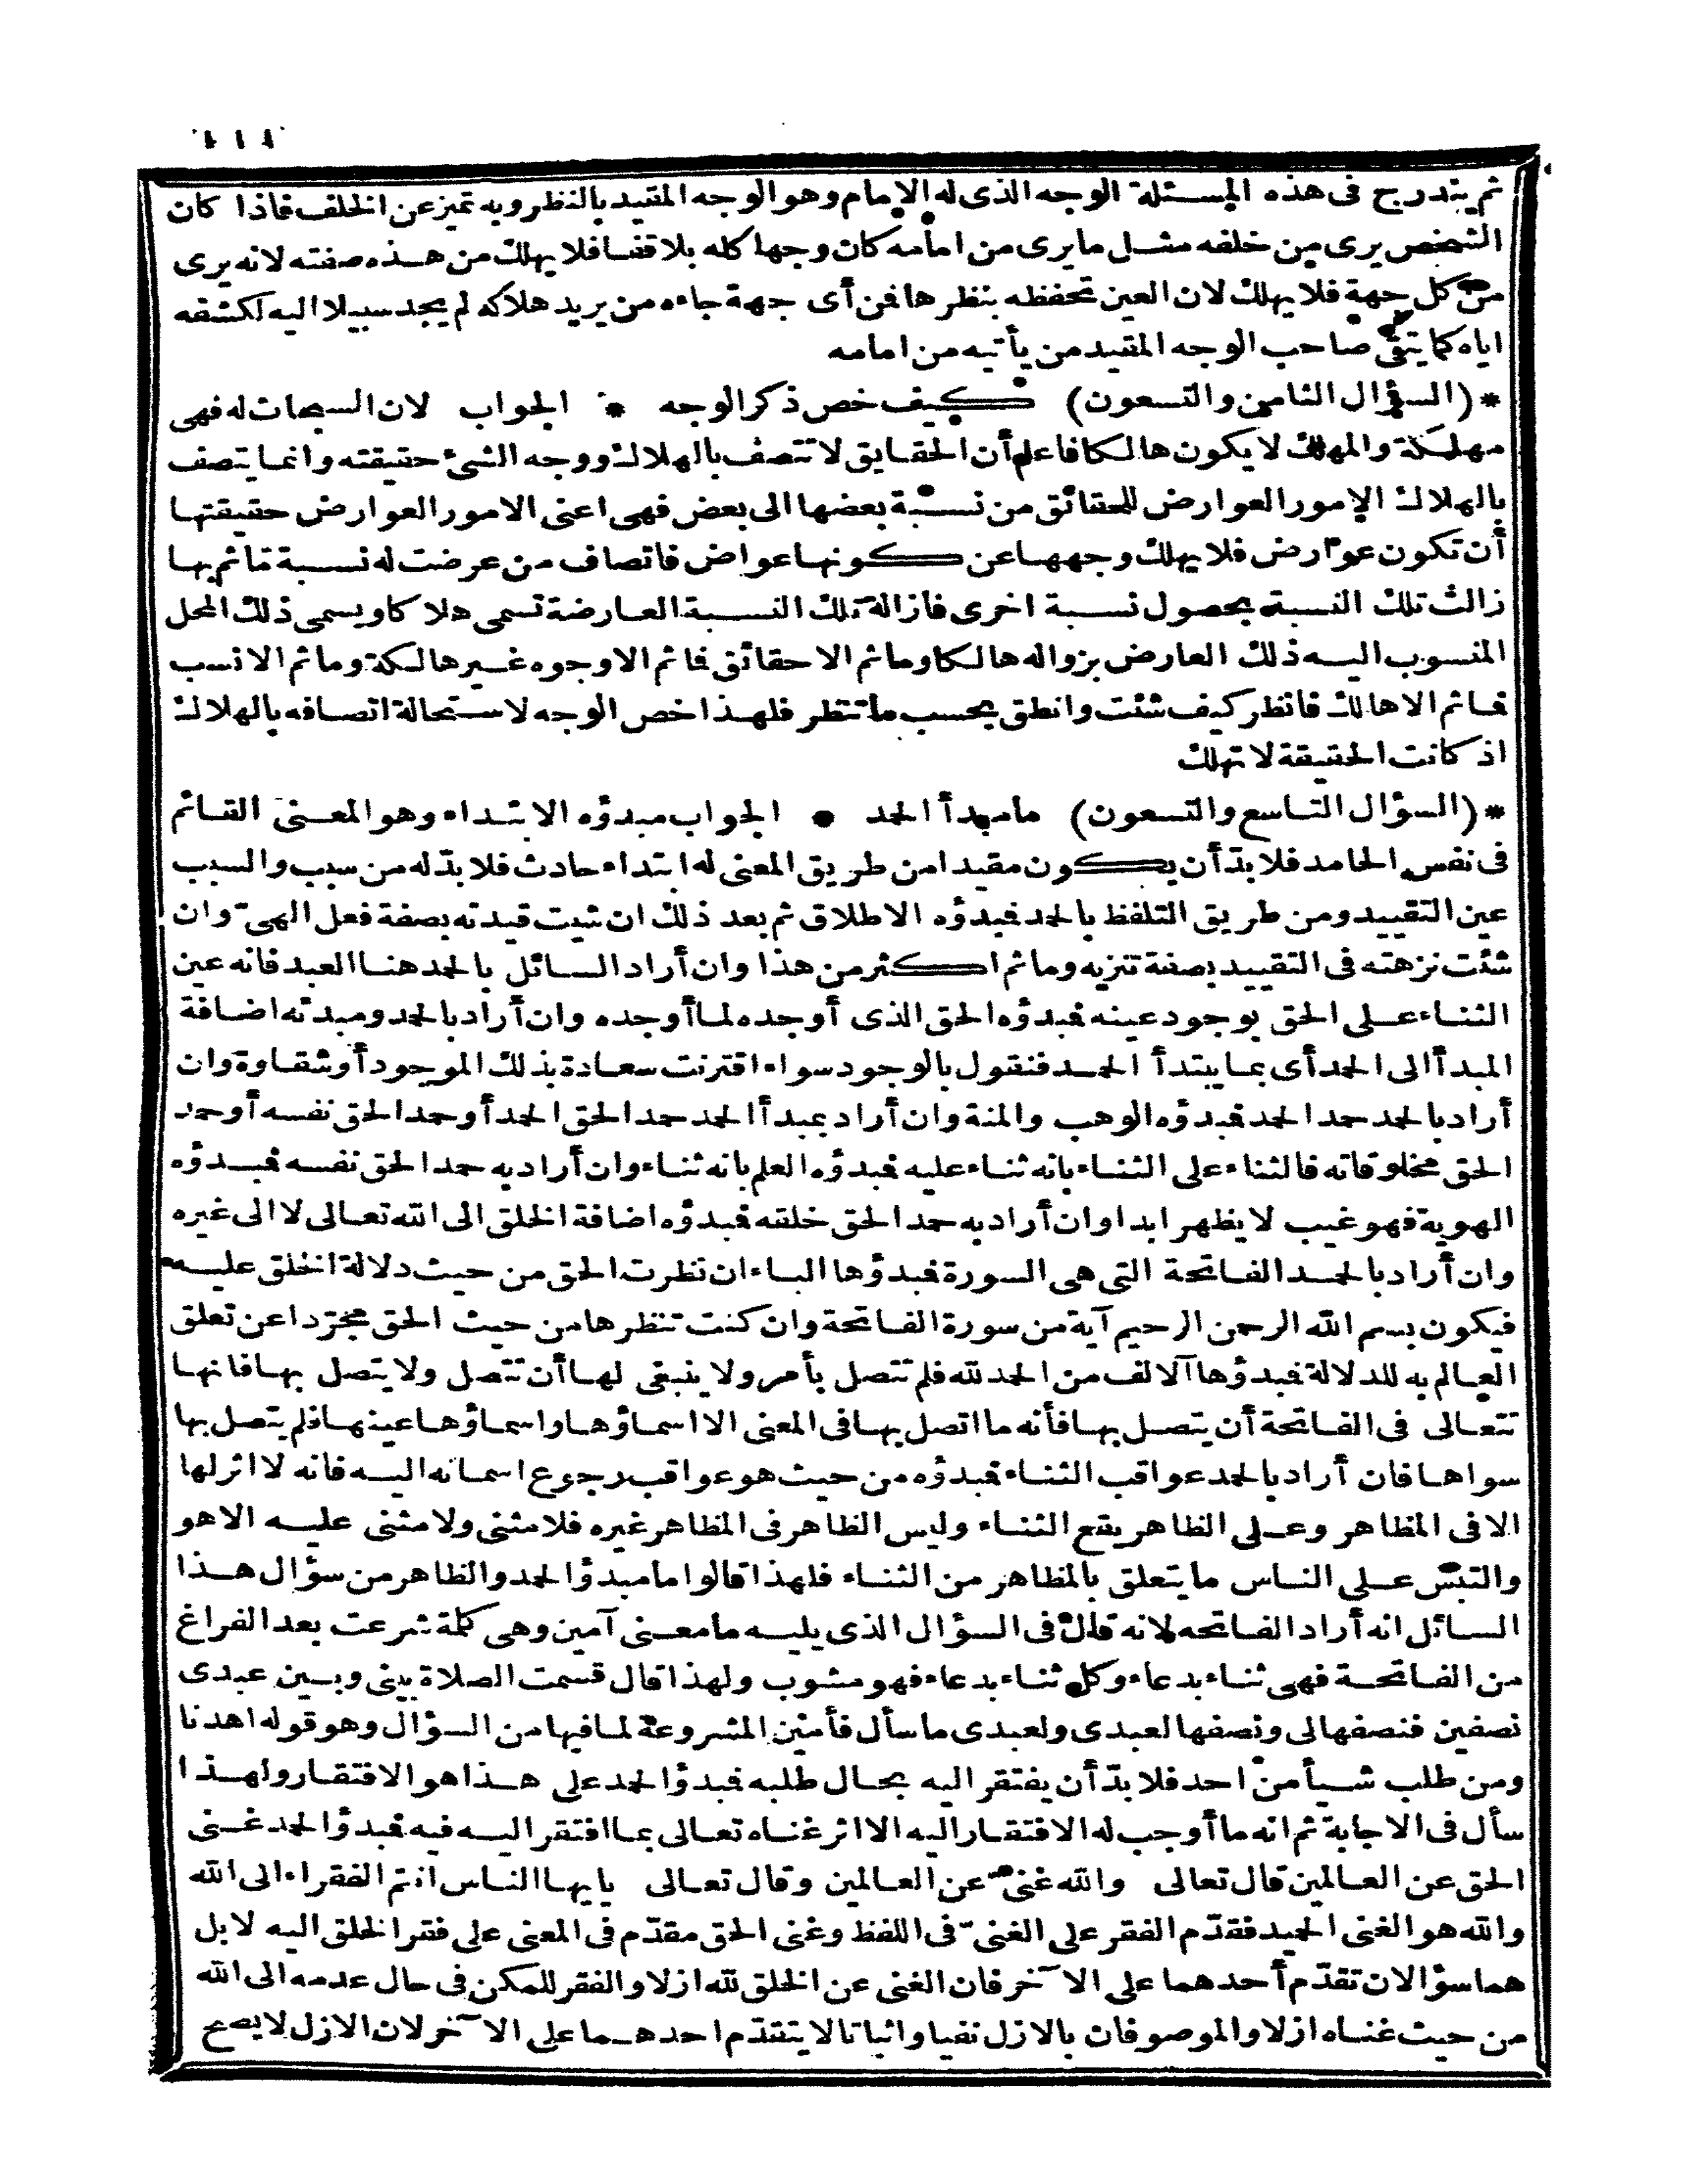 ثم يتدرج فى هذه المسئلة الوجه الذى له الامام وهو الوجه المقيد بالنظر وبه تميز عن الخلف فاذا كان
الشخص يرى من خلفه مثل ما يرى من امامه كان وجها كله بلا قفا فلا يهلك من هذه صفته لانه يرى
من كل جهة فلا يهلك لان العين تحفظه بنظرها فمن أى جهة جاءه من يريد هلاكه لم يجد سبيلا اليه لكشفه
اياه كما يتقى صاحب الوجه المقيد من يأتيه من امامه
* (السؤال الثامن والتسعون) كيف خص ذكر الوجه * الجواب لان السبحات له فهى
مهلكة والمهلك لا يكون هالكا فاعلم أن الحقايق لا تتصف بالهلاك ووجه الشئ حقيقته وانما يتصف
بالهلاك الامور العوارض للحقائق من نسبة بعضها الى بعض فهى اعنى الامور العوارض حقيقتها
أن تكون عوارض فلا يهلك وجهها عن كونها عواض فاتصاف من عرضت له نسبة تما ثم بها
زالت تلك النسبة بحصول نسبة اخرى فازالة تلك النسبة العارضة تسمى هلاكا ويسمى ذلك المحل
المنسوب اليه ذلك العارض بزواله هالكا وما ثم الا حقائق فما ثم الا وجوه غير هالكة وما ثم الا نسب
فما ثم الا هالك فانظر كيف شئت وانطق بحسب ما تنظر فلهذا خص الوجه لاستحالة اتصافه بالهلاك
اذ كانت الحقيقة لا تهلك
* (السؤال التاسع والتسعون) ما مبدأ الحمد * الجواب مبدؤه الابتداء وهو المعنى القائم
فى نفس الحامد فلا بدّ أن يكون مقيدا من طريق المعنى له ابتداء حادث فلا بدّ له من سبب والسبب
عين التقييد ومن طريق التلفظ بالحمد فمبدؤه الاطلاق ثم بعد ذلك ان شيت قيدته بصفة فعل الهىّ وان
شئت نزهته فى التقييد بصفة تنزيه وما ثم اكثر من هذا وان أراد السائل بالحمد هنا العبد فانه عين
الثناء على الحق بوجود عينه فمبدؤه الحق الذى أوجده لما أوجده وان أراد بالحمد ومبدئه اضافة
المبدأ الى الحمد أى بما يبتدأ الحمد فنقول بالوجود سواء اقترنت سعادة بذلك الموجود أو شقاوة وان
أراد بالحمد حمد الحمد فمبدؤه الوهب والمنة وان أراد بمبدأ الحمد حمد الحق الحمد أو حمد الحق نفسه أو حمد
الحق مخلوقاته فالثناء على الثناء بانه ثناء عليه فمبدؤه العلم بانه ثناء وان أراد به حمد الحق نفسه فمبدؤه
الهوية فهو غيب لا يظهر ابدا وان أراد به حمد الحق خلقه فمبدؤه اضافة الخلق الى الله تعالى لا الى غيره
وان أراد بالحمد الفاتحة التى هى السورة فمبدؤها الباء ان نظرت الحق من حيث دلالة الخلق عليه
فيكون بسم الله الرحمن الرحيم آية من سورة الفاتحة وان كنت تنظرها من حيث الحق مجرّدا عن تعلق
العالم به للدلالة فمبدؤها آلالف من الحمد لله فلم تتصل بأمر ولا ينبغى لها أن تتصل ولا يتصل بها فانها
تتعالى فى الفاتحة أن يتصل بها فأنه ما اتصل بها فى المعنى الا اسماؤها واسماؤها عينها فلم يتصل بها
سواها فان أراد بالحمد عواقب الثناء فمبدؤه من حيث هو عواقب رجوع اسمائه اليه فانه لا اثر لها
الا فى المظاهر وعلى الظاهر يقع الثناء وليس الظاهر فى المظاهر غيره فلا مثنى ولا مثنى عليه الا هو
والتبس على الناس ما يتعلق بالمظاهر من الثناء فلهذا قالوا ما مبدؤ الحمد والظاهر من سؤال هذا
السائل انه أراد الفاتحه لانه قال فى السؤال الذى يليه ما معنى آمين وهى كلمة شرعت بعد الفراغ
من الفاتحة فهى ثناء بدعاء وكل ثناء بدعاء فهو مشوب ولهذا قال قسمت الصلاة بينى وبين عبدى
نصفين فنصفها لى ونصفها لعبدى ولعبدى ما سأل فأمنين المشروعة لما فيها من السؤال وهو قوله اهدنا
ومن طلب شيأ من احد فلا بدّ أن يفتقر اليه بحال طلبه فمبدؤ الحمد على هذا هو الافتقار ولهذا
سأل فى الاجابة ثم انه ما أوجب له الافتقار اليه الا اثر غناه تعالى بما افتقر اليه فيه فمبدؤ الحمد غنى
الحق عن العالمين قال تعالى والله غنى عن العالمين وقال تعالى يا يها الناس انتم الفقراء الى الله
والله هو الغنى الحميد فقدّم الفقر على الغنىّ فى اللفظ وغنى الحق مقدّم فى المعنى على فقر الخلق اليه لا بل
هما سؤالان تقدّم أحدهما على الآخر فان الغنى عن الخلق لله ازلا والفقر للمكن فى حال عدمه الى الله
من حيث غناه ازلا والموصوفان بالازل نفيا واثباتا لا يتقدّم احدهما على الآخر لان الازل لا يصح